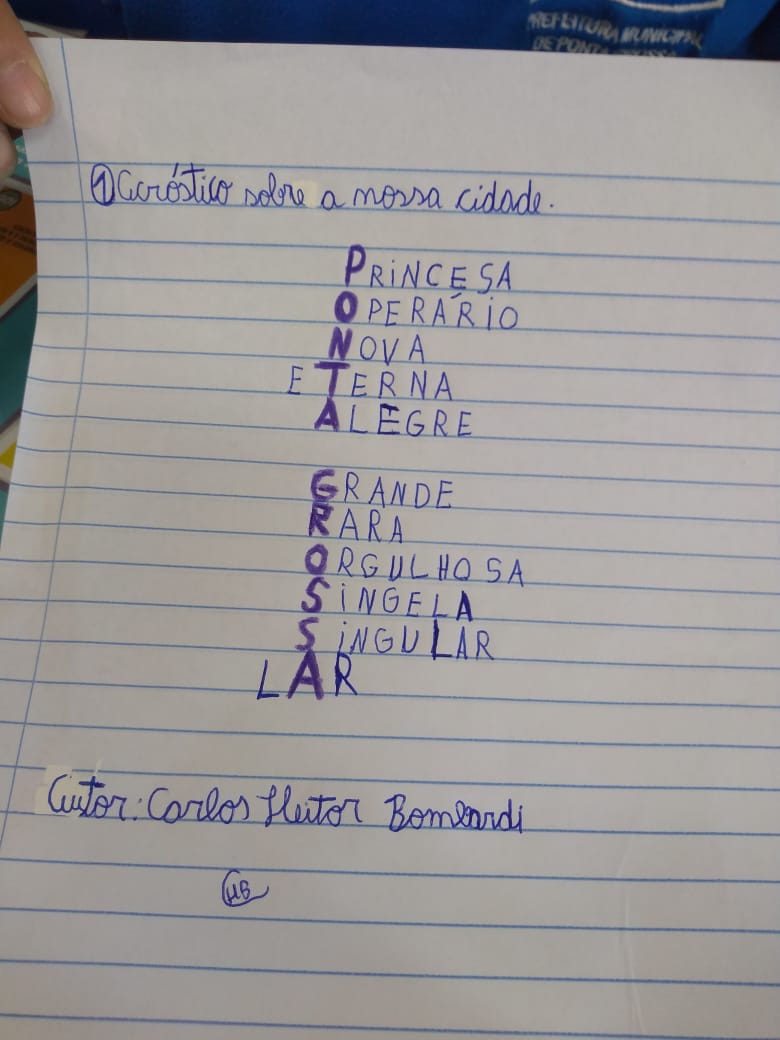 PREFEITURA MUNICIPAL
DE PONTA GROSSA
1 Acróstico sobre a nossa cidade.
PRINCESA
OPERÁRIO
NOVA
ETERNA
ALEGRE
GRANDE
RARA
ORGULHOSA
SINGELA
SINGULAR
LAR
Autor: Carlos Heitor Bombardi